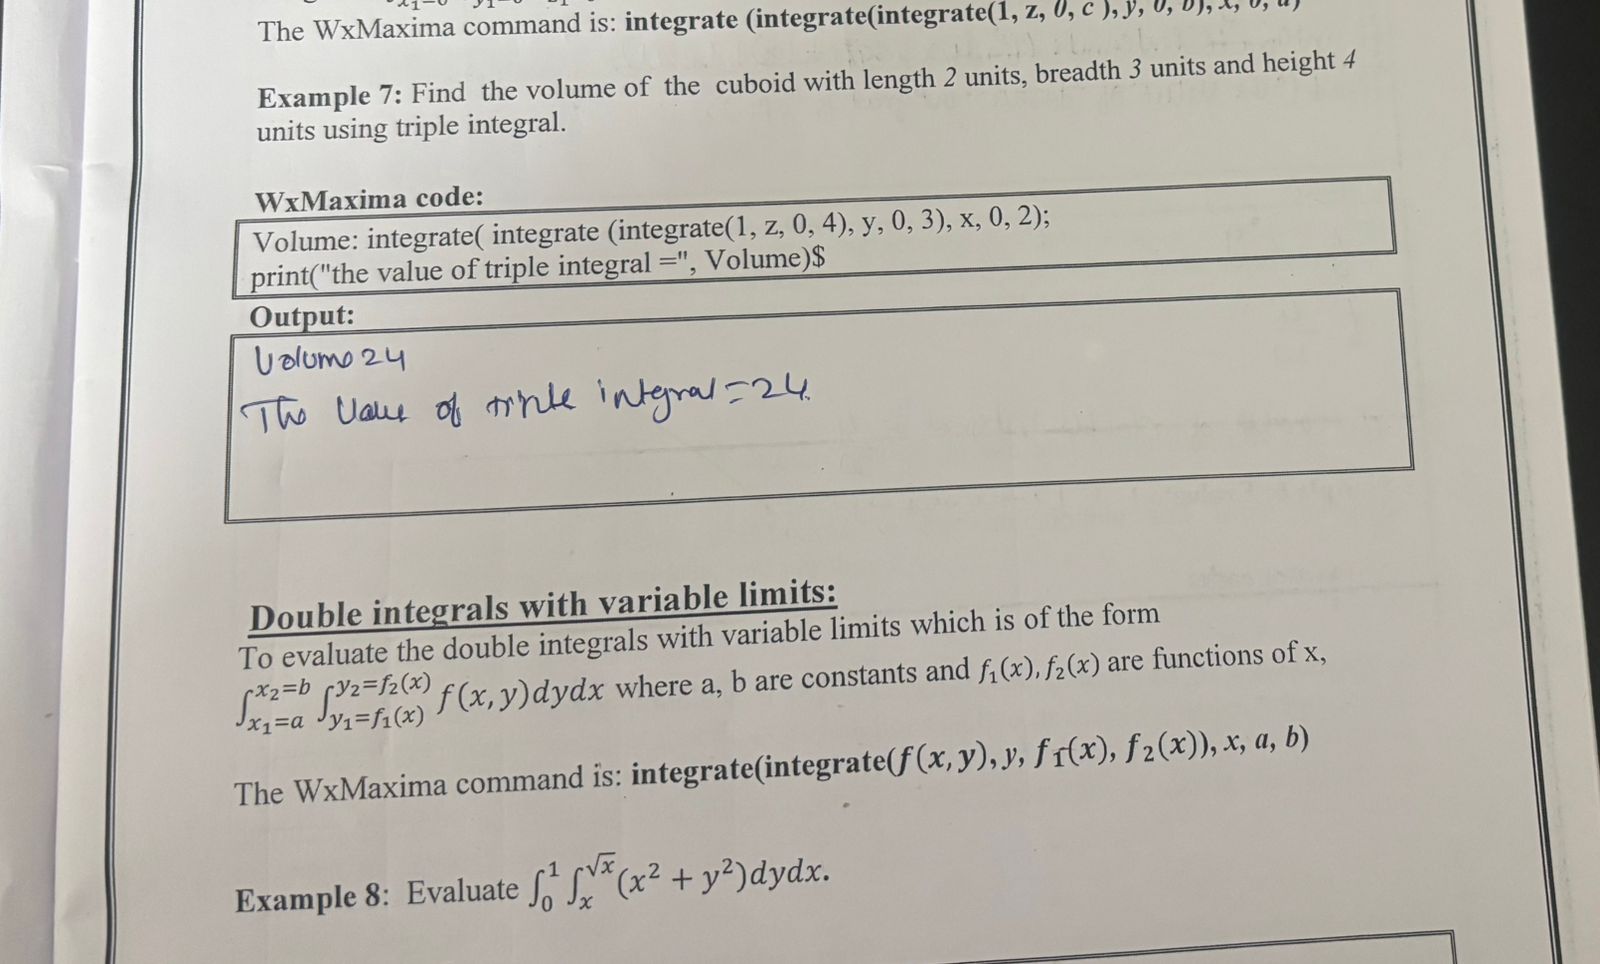 The WxMaxima command is: integrate (integrate(integrate(1, z, 0, c ), y, 0, b), x, 0, a)
Example 7: Find the volume of the cuboid with length 2 units, breadth 3 units and height 4
units using triple integral.
WxMaxima code:
Volume: integrate( integrate (integrate(1, z, 0, 4), y, 0, 3), x, 0, 2);
print("the value of triple integral =", Volume)$
Output:
Volume 24
The Value of triple integral = 24.
Double integrals with variable limits:
To evaluate the double integrals with variable limits which is of the form
∫_{x₁=a}^{x₂=b} ∫_{y₁=f₁(x)}^{y₂=f₂(x)} f(x, y)dydx where a, b are constants and f₁(x), f₂(x) are functions of x,
The WxMaxima command is: integrate(integrate(f(x, y), y, f₁(x), f₂(x)), x, a, b)
Example 8: Evaluate ∫₀¹ ∫ₓ^√x (x² + y²)dydx.